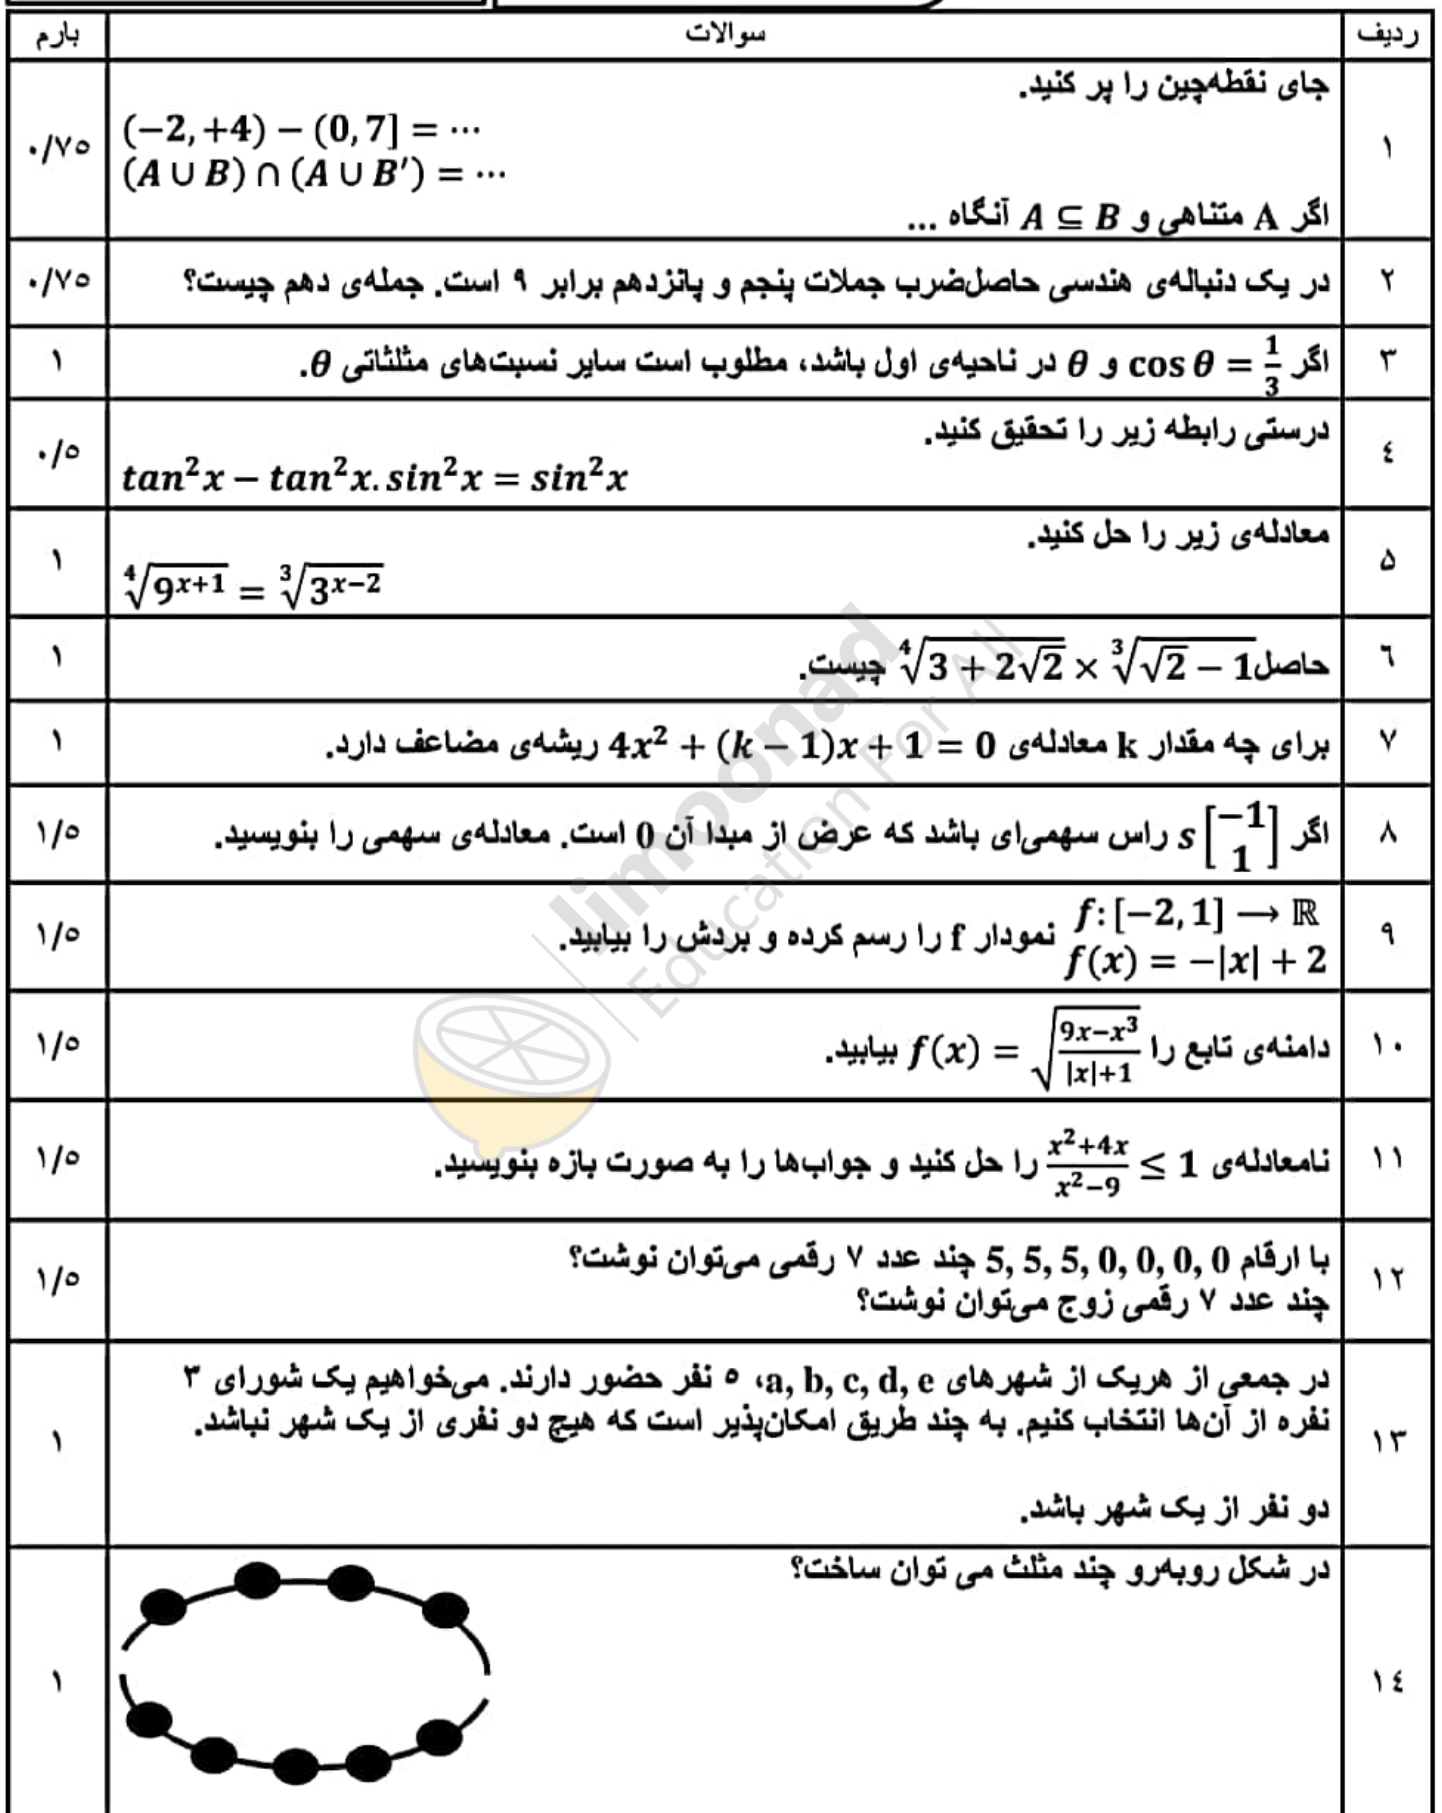 ردیف سوالات بارم
۱ جای نقطه‌چین را پر کنید. ۰/۷۵
(−2, +4) − (0, 7] = ⋯
(A ∪ B) ∩ (A ∪ B′) = ⋯
اگر A متناهی و A ⊆ B آنگاه ...
۲ در یک دنباله‌ی هندسی حاصل‌ضرب جملات پنجم و پانزدهم برابر ۹ است. جمله‌ی دهم چیست؟ ۰/۷۵
۳ اگر cos θ = 1/3 و θ در ناحیه‌ی اول باشد، مطلوب است سایر نسبت‌های مثلثاتی θ. ۱
٤ درستی رابطه زیر را تحقیق کنید. ۰/۵
tan²x − tan²x. sin²x = sin²x
۵ معادله‌ی زیر را حل کنید. ۱
∜(9^(x+1)) = ∛(3^(x−2))
٦ حاصل ∜(3 + 2√2) × ∛(√2 − 1) چیست. ۱
۷ برای چه مقدار k معادله‌ی 4x² + (k − 1)x + 1 = 0 ریشه‌ی مضاعف دارد. ۱
۸ اگر s [−1 1] راس سهمی‌ای باشد که عرض از مبدا آن 0 است. معادله‌ی سهمی را بنویسید. ۱/۵
۹ f: [−2, 1] ⟶ ℝ
f(x) = −|x| + 2 نمودار f را رسم کرده و بردش را بیابید. ۱/۵
۱۰ دامنه‌ی تابع را f(x) = √((9x−x³)/(|x|+1)) بیابید. ۱/۵
۱۱ نامعادله‌ی (x²+4x)/(x²−9) ≤ 1 را حل کنید و جواب‌ها را به صورت بازه بنویسید. ۱/۵
۱۲ با ارقام 5, 5, 5, 0, 0, 0, 0 چند عدد ۷ رقمی می‌توان نوشت؟ ۱/۵
چند عدد ۷ رقمی زوج می‌توان نوشت؟
۱۳ در جمعی از هریک از شهرهای a, b, c, d, e، ۵ نفر حضور دارند. می‌خواهیم یک شورای ۳ ۱
نفره از آن‌ها انتخاب کنیم. به چند طریق امکان‌پذیر است که هیچ دو نفری از یک شهر نباشد.
دو نفر از یک شهر باشد.
۱٤ در شکل روبه‌رو چند مثلث می توان ساخت؟ ۱
limoonad
Education For All